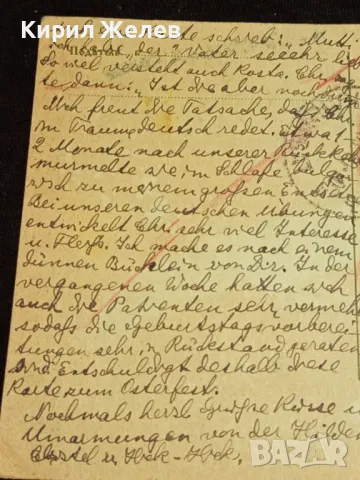 Кирил Желев
schrieb: "Mutti
ich habe der Vater
So viel versteht auch Kosta. Chr.
te dann: "Ist die aber noch
Mich freut die Tatsache, daß Chr
im Traum deutsch redet. Etwa
2 Monate nach unserer Rückkehr
murmelte sie im Schlafe bulga
risch zu meinem großen Entset
Bei unseren deutschen Übungen
entwickelt Chr. sehr viel Interesse
u. Fleiß. Ich mache es nach einem
dünnen Büchlein von Dir. In der
vergangenen Woche hatten sich
auch die Patienten sehr vermehrt
sodaß die Geburtstagsvorberei
tungen sehr in Rückstand geraten
sind. Entschuldigt deshalb diese
Karte zum Osterfest.
Nochmals herzl. Grüße Küsse u
Umarmungen von der Hilde
u.
bazar.bg